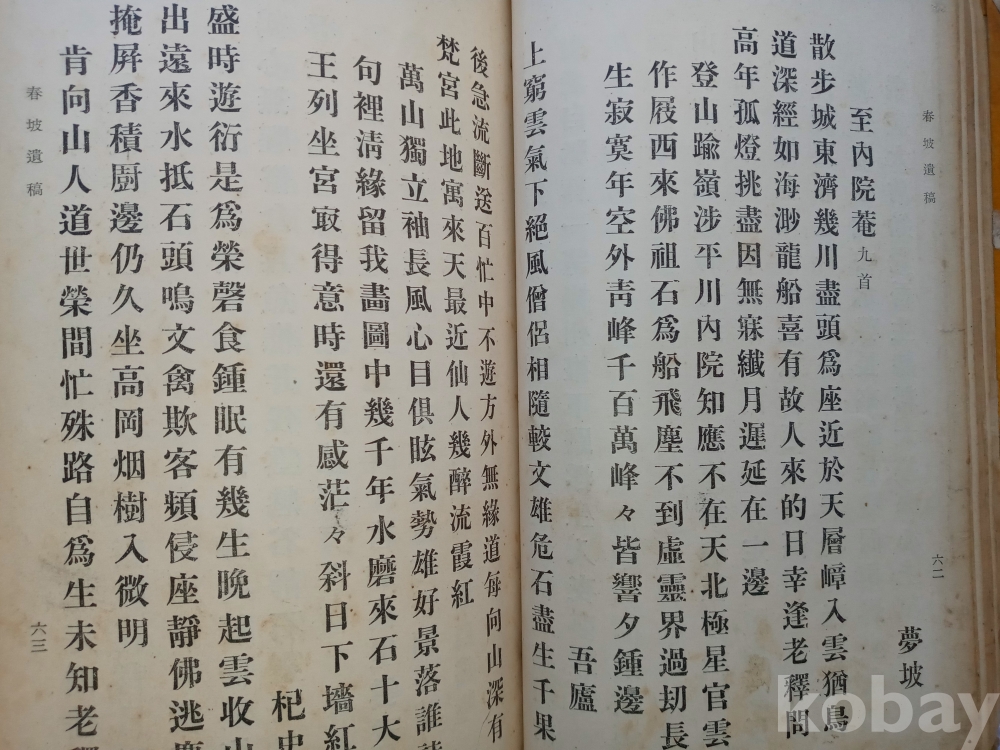 春坡遺稿
六二
至內院菴 九首
夢坡
散步城東濟幾川盡頭爲座近於天層嶂入雲猶鳥
道深經如海渺龍船喜有故人來的日幸逢老釋問
高年孤燈挑盡因無寐纖月遲延在一邊
登山踰嶺涉平川內院知應不在天北極星官雲
作屐西來佛祖石爲船飛塵不到虛靈界過刧長
生寂寞年空外靑峰千百萬峰々皆響夕鍾邊
吾廬
上窮雲氣下絕風僧侶相隨較文雄危石盡生千果
後急流斷送百忙中不遊方外無緣道每向山深有
梵宮此地寓來天最近仙人幾醉流霞紅
萬山獨立袖長風心目俱眩氣勢雄好景落誰
句裡淸緣留我畵圖中幾千年水磨來石十大
王列坐宮㝡得意時還有感茫々斜日下墻紅
杞史
盛時遊衍是爲榮磬食鍾眠有幾生晩起雲收山
出遠來水抵石頭鳴文禽欺客頻侵座靜佛逃
掩屛香積厨邊仍久坐高岡烟樹入微明
肯向山人道世榮間忙殊路自爲生未知老
春坡遺稿
六三
kobay